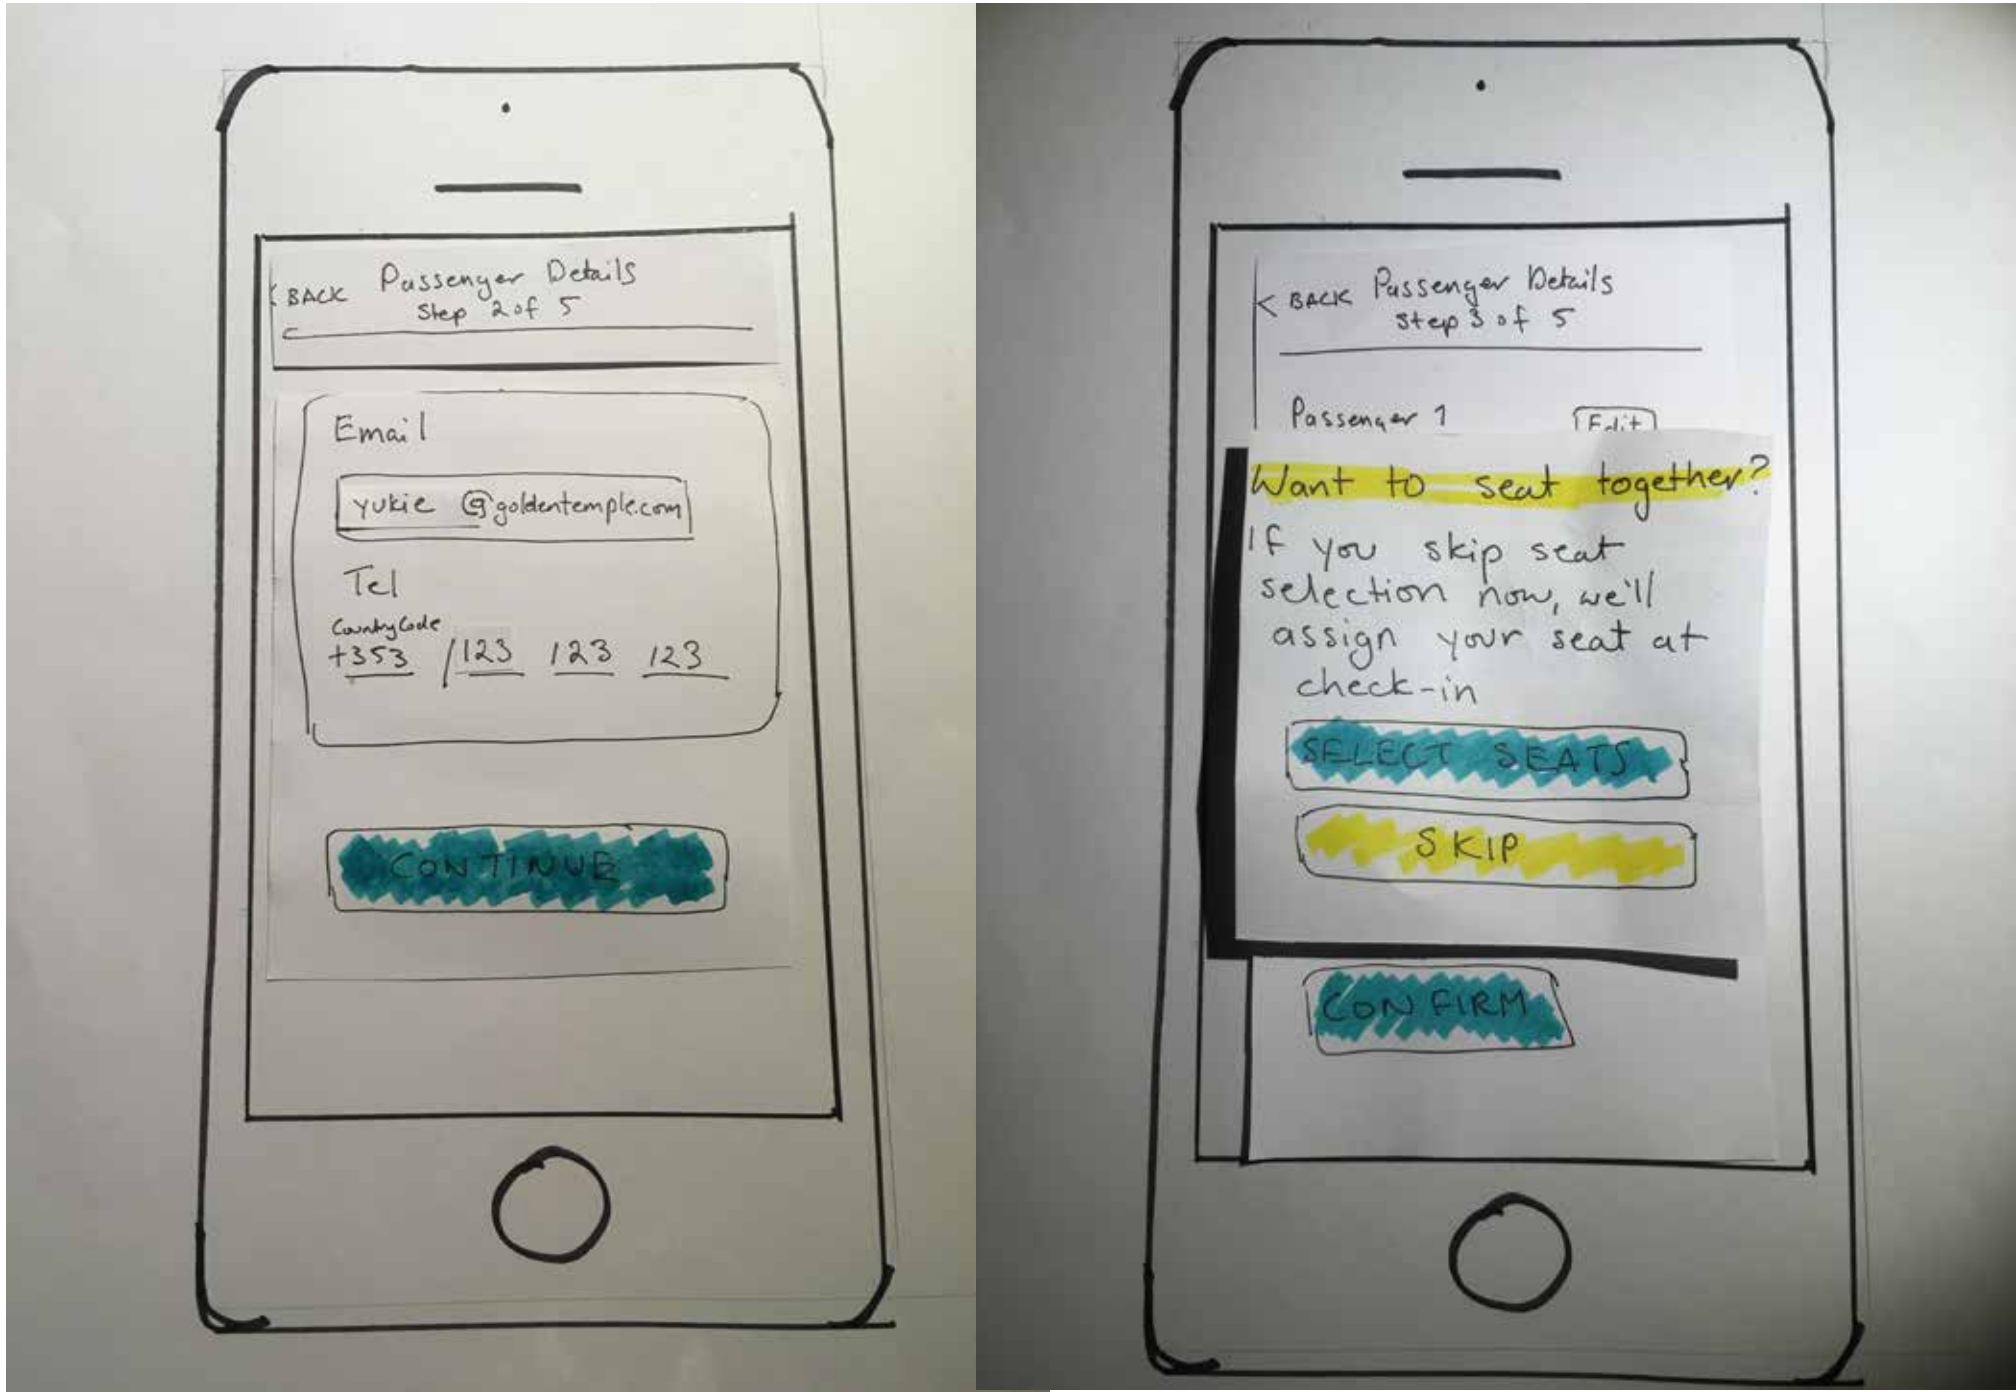 < BACK Passenger Details
Step 2 of 5
Email
yukie @goldentemple.com
Tel
Country Code
+353 / 123 123 123
CONTINUE
< BACK Passenger Details
Step 3 of 5
Passenger 1 Edit
Want to seat together?
If you skip seat
selection now, we'll
assign your seat at
check-in
SELECT SEATS
SKIP
CONFIRM